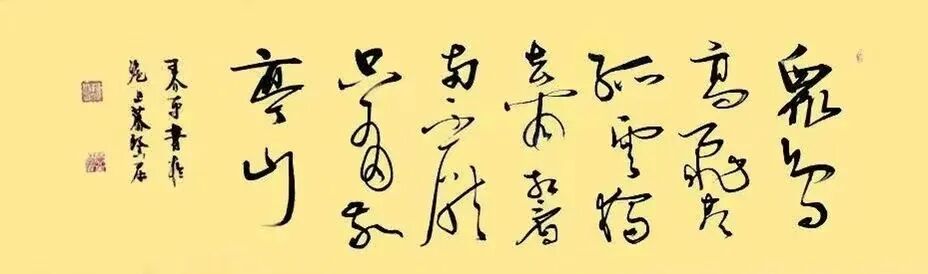 眾鳥
高飛尽
孤雲獨
去閑相看
兩不厭
只有敬
亭山
春書於
上